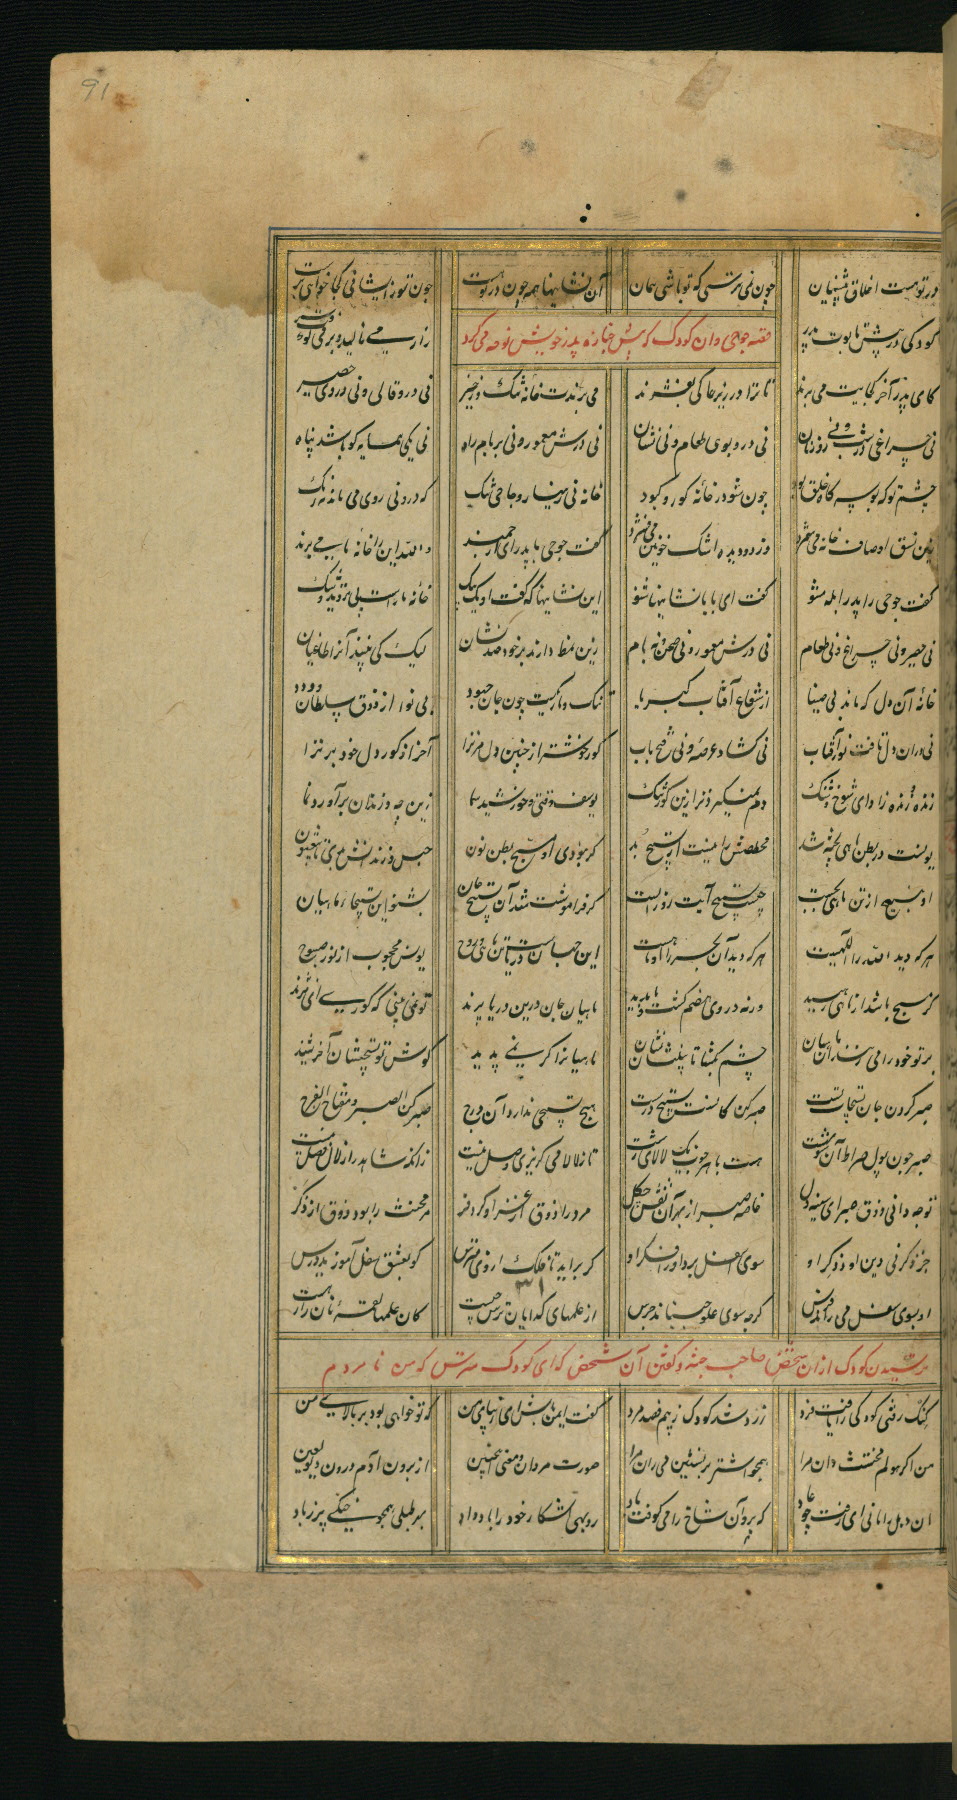 91
در تو هست اخلاق پیشینیان چون نمی ترسی که تو باشی همان
آن نشانیها همه چون در تو هست چون تو زایشانی کجا خواهی برست
قصه جوحی و آن کودک که پیش جنازه پدر خویش نوحه می کرد
کودکی در پیش تابوت پدر زار می نالید و بر می کوفت سر
کای پدر آخر کجایت می برند تا ترا در زیر خاکی بفشرند
می برندت خانه تنگ و زحیر نی درو قالی و نی در وی حصیر
نی چراغی در شب و نی روز نان نی درو بوی طعام و نی نشان
نی درش معمور و نی بر بام راه نی یکی همسایه کو باشد پناه
چشم تو که بوسه گاه خلق بود چون شود در خانه کور و کبود
خانه بی زینهار و جای تنگ که درو نی روی می ماند نه رنگ
زین نسق اوصاف خانه می شمرد وز دو دیده اشک خونین می فشرد
گفت جوحی با پدر ای ارجمند والله این را خانه ما می برند
گفت جوحی را پدر ابله مشو گفت ای بابا نشانیها شنو
این نشانیها که گفت او یک بیک خانه ماراست بی تردید و شک
نی حصیر و نی چراغ و نی طعام نی درش معمور و نی صحن و نه بام
زین نمط دارند بر خود صد نشان لیک کی بینند آنرا طاغیان
خانه آن دل که ماند بی ضیا از شعاع آفتاب کبریا
تنگ و تاریکست چون جان جهود بی نوا از ذوق سلطان ودود
نی در آن دل تافت نور آفتاب نی گشاد عرصه و نی فتح باب
گور خوشتر از چنین دل مر ترا آخر از گور دل خود برتر آ
زنده و زنده زا دای شوخ و شنگ دم نمی گیرد ترا زین گور تنگ
یوسف وقتی و خورشید سما زین چه و زندان برآ و رو نما
یونست در بطن ماهی پخته شد مخلصش را نیست از تسبیح بد
گر نبودی او مسبح بطن نون حبس و زندانش بدی تا یبعثون
او بتسبیح از تن ماهی بجست چیست تسبیح آیت روز الست
گر فراموشت شد آن تسبیح جان بشنو این تسبیحهای ماهیان
هر که دید الله را اللهیست هر که دید آن بحر را او ماهیست
این جهان دریاست و تن ماهی و روح یونس محجوب از نور صبوح
گر مسبح باشد از ماهی رهید ورنه در وی هضم گشت و ناپدید
ماهیان جان درین دریا پرند تو نمی بینی که کوری ای نژند
بر تو خود را می زنند آن ماهیان چشم بگشا تا ببینیشان نشان
ماهیانرا گر نمی بینی پدید گوش تو تسبیحشان آخر شنید
صبر کردن جان تسبیحات تست صبر کن کانست تسبیح درست
هیچ تسبیحی ندارد آن درج صبر کن الصبر مفتاح الفرج
صبر چون پول صراط آن سو بهشت هست با هر خوب یک لالای زشت
تا ز لالا می گریزی وصل نیست زانکه شاهد را ز لالا فصل نیست
تو چه دانی ذوق صبر ای شیشه دل خاصه صبر از بهر آن نقش چگل
مرد را ذوق از غزا و کر و فر مر مخنث را بود ذوق از ذکر
جز ذکر نی دین او و ذکر او سوی اسفل برد او را فکر او
گر برآید تا فلک از وی مترس کو بعشق سفل آموزید درس
او بسوی سفل می راند فرس گرچه سوی علو جنباند جرس
از علمهای گدایان ترس چیست کان علمها لقمه نان را رهیست
ترسیدن کودک از آن شخص صاحب جثه و گفتن آن شخص که ای کودک مترس که من نامردم
کنگ زفتی کودکی را یافت فرد زرد شد کودک ز بیم قصد مرد
گفت ایمن باش ای زیبای من که تو خواهی بود بر بالای من
من اگر هولم مخنث دان مرا همچو اشتر بر نشین می ران مرا
صورت مردان و معنی اینچنین از برون آدم درون دیو لعین
آن دهل را مانی ای زفت چو عاد که برو آن شاخ را می کوفت باد
روبهی اشکار خود را باد داد بهر طبلی همچو خیکی پر ز باد